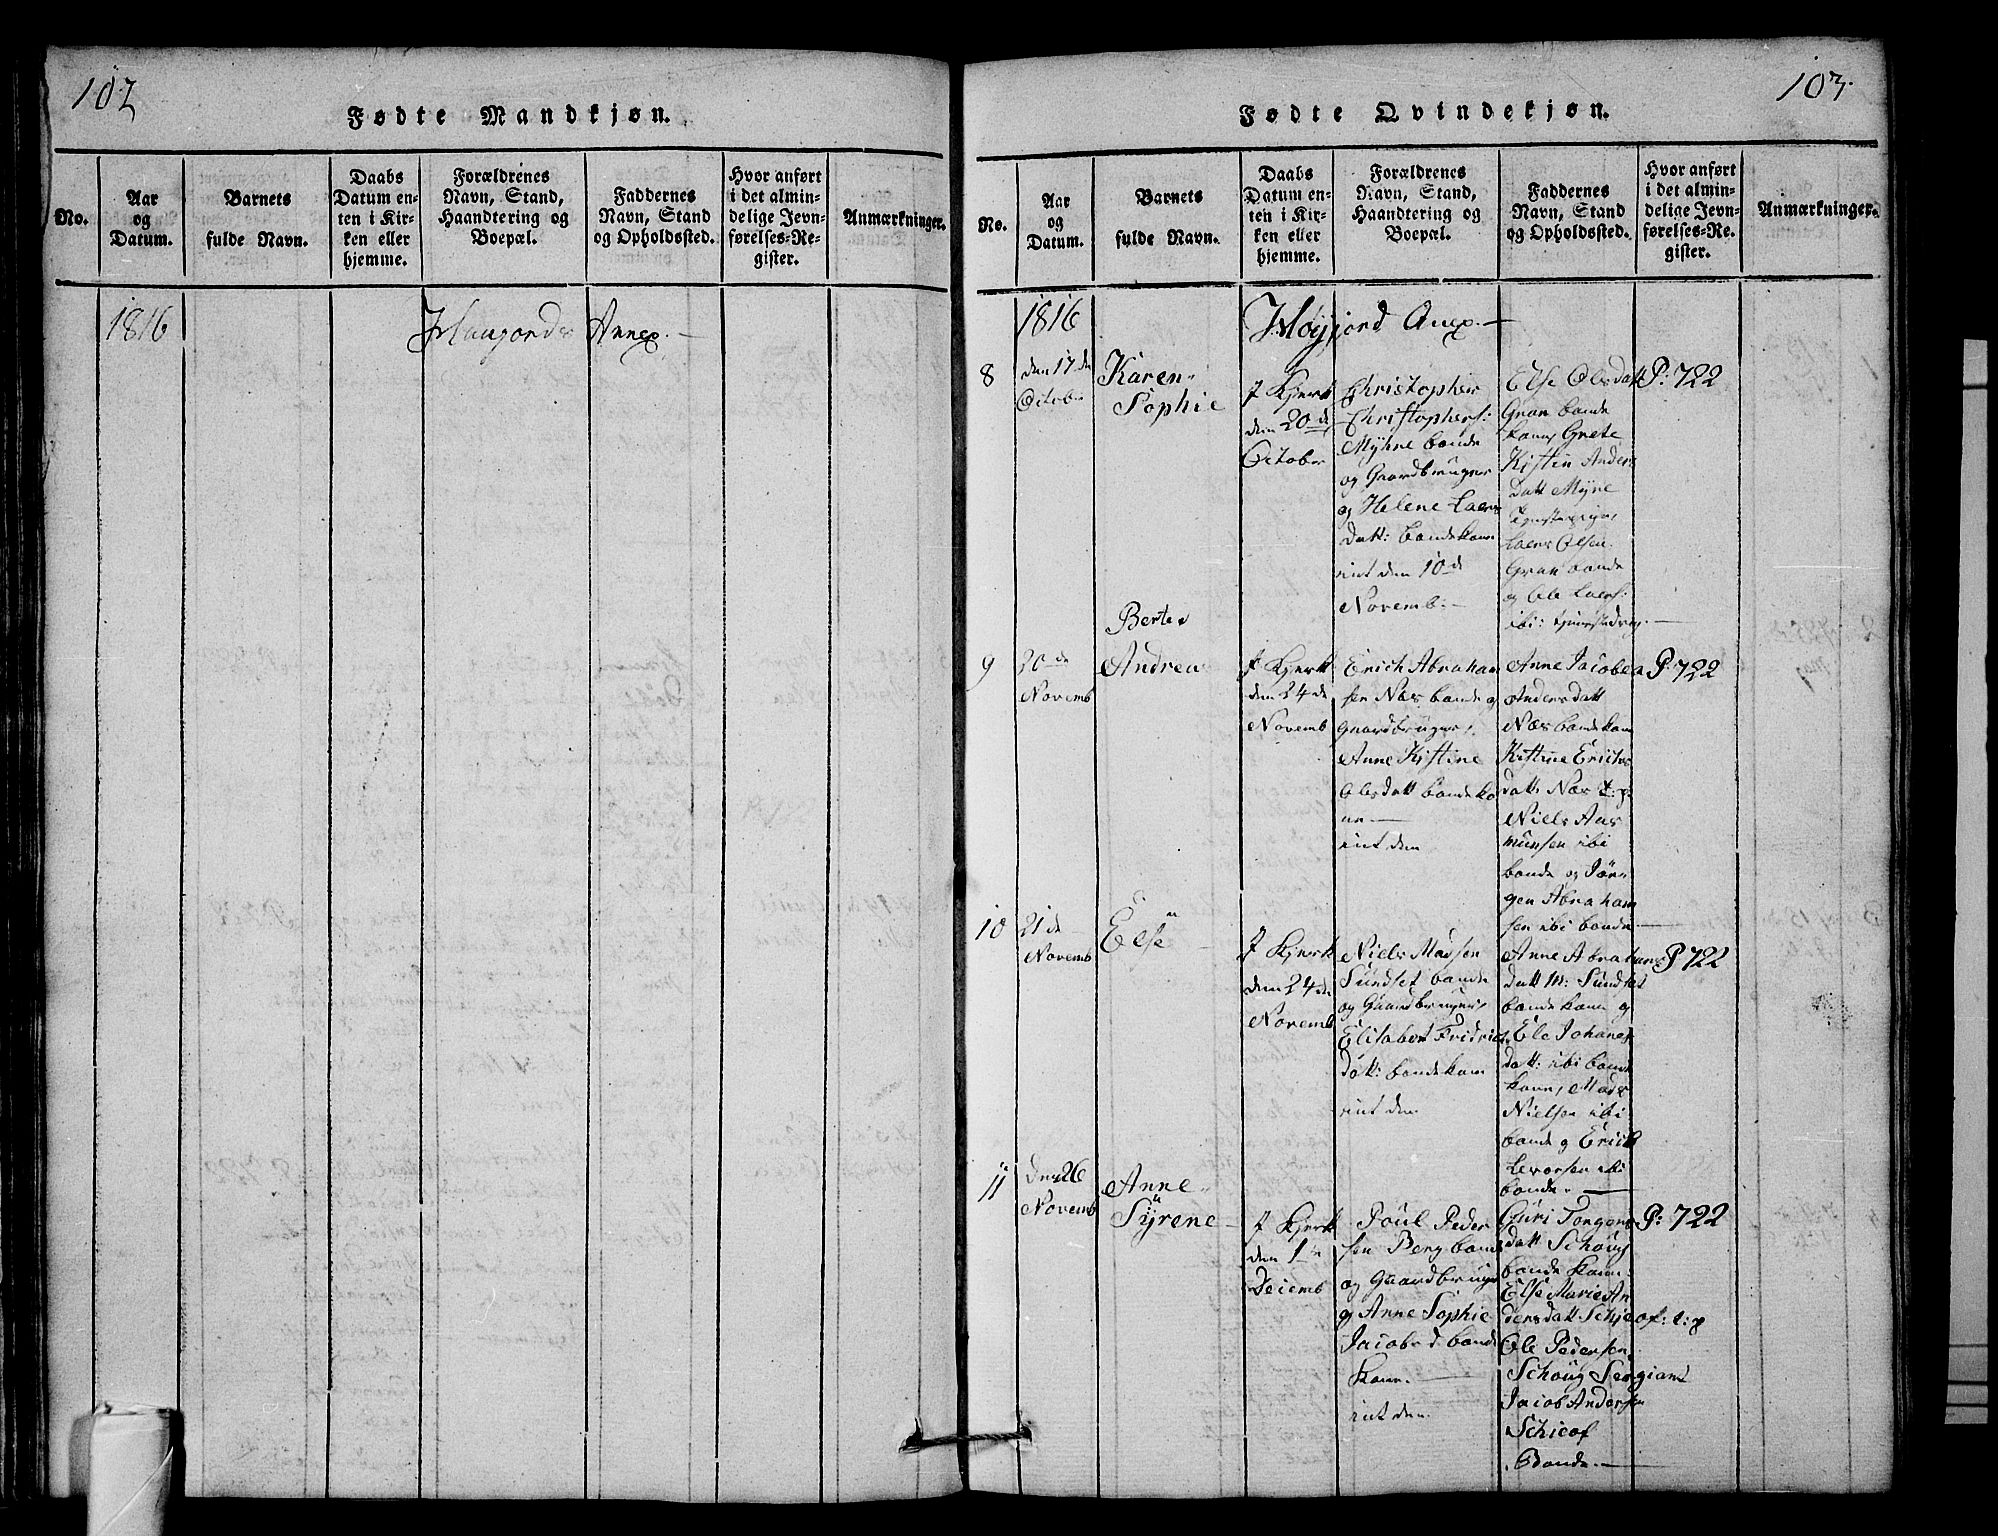 102
Fødte Mandkjøn.
No.
Aar
og
Datum.
Barnets
fulde Navn.
Daabs
Datum en-
ten i Kir-
ken eller
hjemme.
Forældrenes
Navn, Stand,
Haandtering og
Boepæl.
Faddernes
Navn, Stand
og Opholdssted.
Hvor anført
i det almin-
delige Jevn-
førelses-Re-
gister.
Anmærkninger.
1816
Annex.
103.
Fødte Qvindekjøn.
No.
Aar
og
Datum.
Barnets
fulde Navn.
Daabs
Datum en-
ten i Kir-
ken eller
hjemme.
Forældrenes
Navn, Stand,
Haandtering og
Boepæl.
Faddernes
Navn, Stand
og Opholdssted.
Hvor anført
i det almin-
delige Jevn-
førelses-Re-
gister.
Anmærkninger.
1816
Høyjord Anex.
8
den 17 de
Octobr
Karen
Sophie
J Kjerk
den 20 de
October
Christopher
Christophers:
Myhre bonde
og Gaardbruger
og Helene Laers
Datt: bondekone
int den 10 de
Novemb:
Else Olsdatt
Gran bonde
kone, Grete
Kistin Anders
Datt Myre
Laers Olsen
Gran bonde
og Ole Laers:
ibi:
P: 722
9
20 de
Novemb
Berte
Andrea
J Kjerk
den 24 de
Novemb
Erich Abraham
sen Næs bonde og
Gaardbruger,
Anne Kistine
Olsdatt bondeko
ne
int den
Anne Jacobea
Andersdatt
Næs bondekone
Kistine Erichs
datt. Næs t: p.
Niels Aas
munsen ibi
bonde og Jør-
gen Abraham
sen ibi bonde
P. 722
10
21 de
Novemb
Else
J Kjerk
den 24 de
Novemb
Niels Madsen
Sundset bonde
og Gaardbruger,
Elisabet Fridrich
Datt: bondekone
int den
Anne Abrahams
datt m: Sundset
bondekone og
Ele Johanes
Datt: ibi bonde
kone, Mads
Nielsen ibi
bonde og Erich
Levorsen ibi
bonde.
P 722
11
Den 26
Novemb
Anne
Syrene
J Kjerk
den 1 te
Decemb
Poul Peder
sen Berg bonde
og Gaardbruger
og Anne Sophie
Jacobs d bonde
kone.
int den
Guri Torgers
datt Schoug
bonde kone.
Else Marie An
dersdatt Schieof: t: p
Ole Pedersen
Schoug Sergiant
Jacob Andersen
Schieof
Bonde.
P: 722